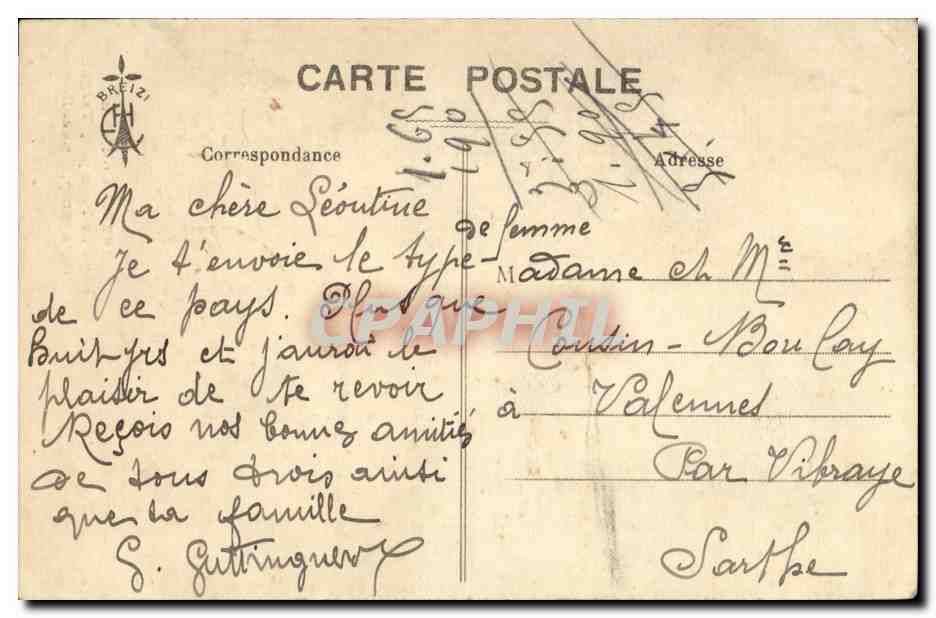 CARTE POSTALE
BREIZ!
Correspondance
Adresse
1.65
190
Ma chère Léontine
Je t'envoie le type
de femme
de ce pays. Plus que
huit jrs et j'aurai le
plaisir de te revoir
Reçois nos bonnes amitiés
de tous trois ainsi
que ta famille
G. Guttinguer
Madame et Mr
Cousin - Boulay
à Valennes
Par Vibraye
Sarthe
CPAPHIL